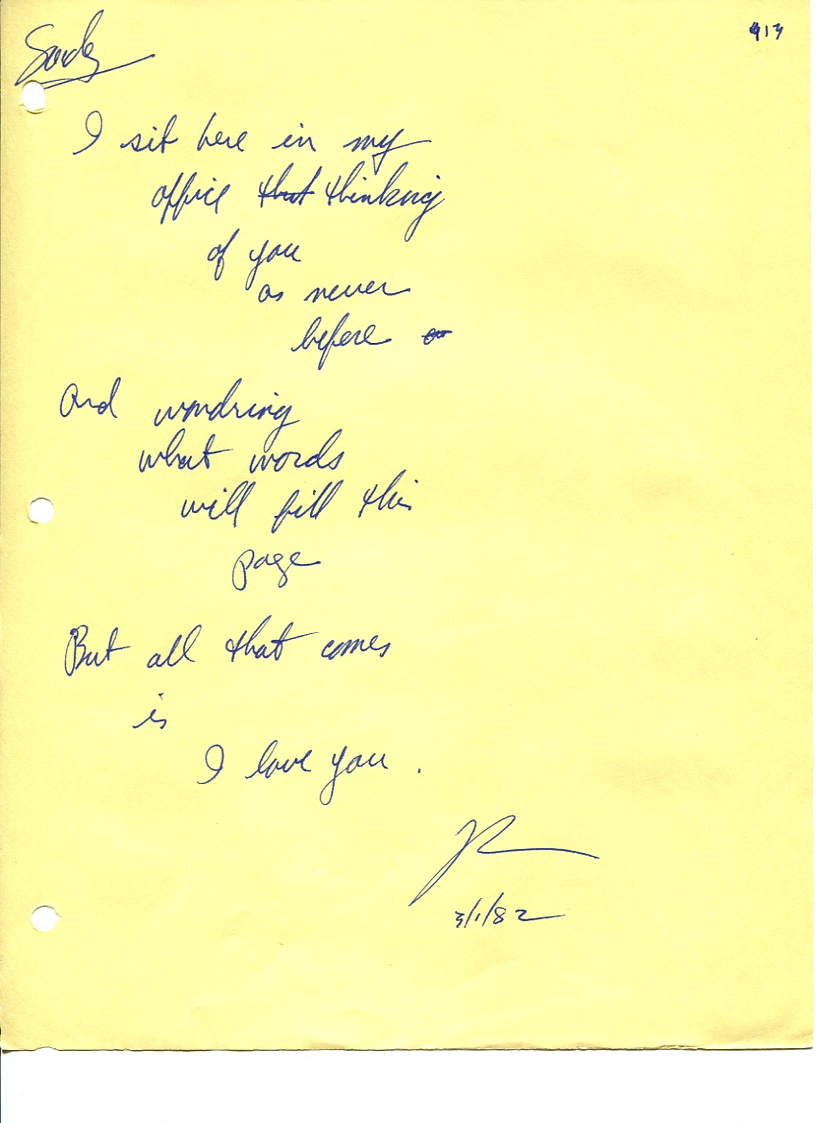 913
I sit here in my
office that thinking
of you
as never
before or
And wondring
what words
will fill this
page
But all that comes
is
I love you.
JR
3/1/82